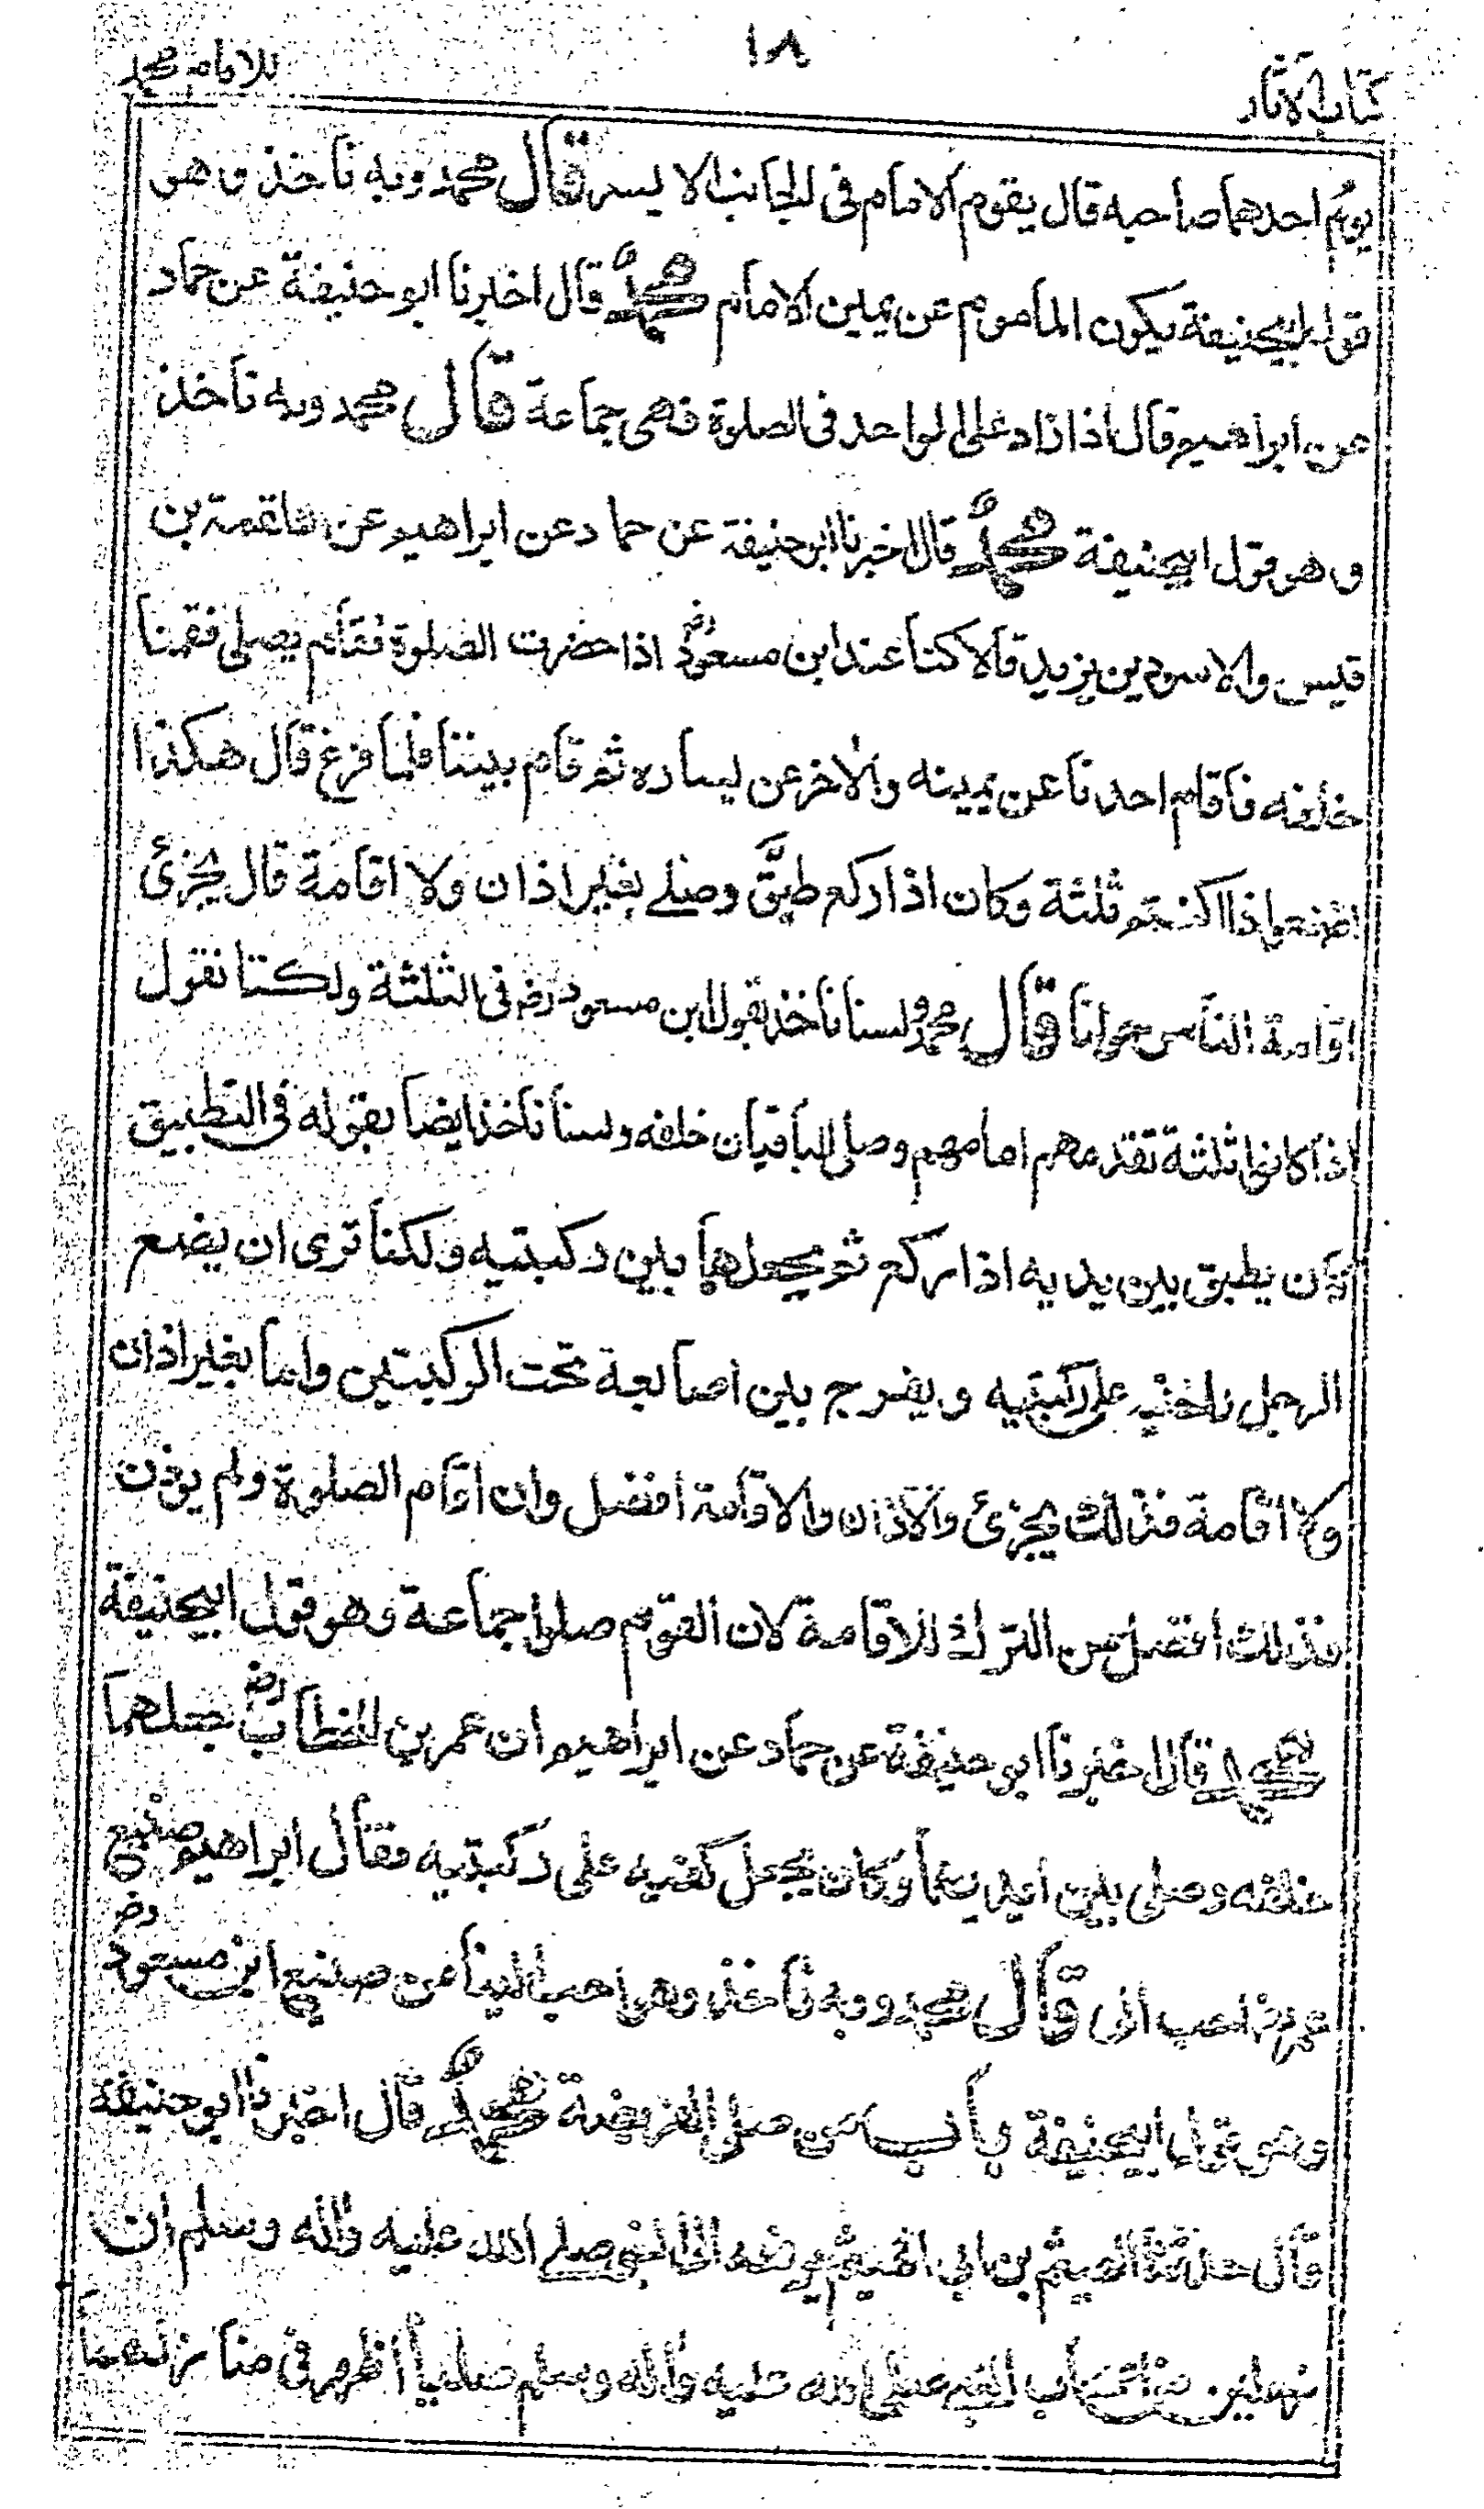 كتاب الاثار
١٨
للامام محمد
يؤم احدهما صاحبه قال يقوم الامام فى الجانب الايسر قال محمد وبه ناخذ وهو
قول ابيحنيفة يكون المأموم عن يمين الامام محمد قال اخبرنا ابو حنيفة عن حماد
عن ابراهيم قال اذا زاد على الواحد فى الصلوة فهى جماعة قال محمد وبه ناخذ
وهو قول ابيحنيفة محمد قال اخبرنا ابو حنيفة عن حماد عن ابراهيم عن علقمة بن
قيس والاسود بن يزيد قالا كنا عند ابن مسعود رض اذا حضرت الصلوة فقام يصلى فقمنا
خلفه فاقام احدنا عن يمينه والاخر عن يساره ثم قام بيننا فلما فرغ قال هكذا
اصنعوا اذا كنتم ثلثة وكان اذا ركع طبّق وصلے بغير اذان ولا اقامة قال يجزئ
اقامة الناس حولنا قال محمد ولسنا ناخذ بقول ابن مسعود رض فى الثلثة ولكنا نقول
اذا كانوا ثلثة تقدمهم امامهم وصلى الباقيان خلفه ولسنا ناخذ ايضا بقوله فى التطبيق
كان يطبق بين يديه اذا ركع ثم يجعلهما بين ركبتيه ولكنا نرى ان يضع
الرجل راحتيه على ركبتيه ويفرج بين اصابعه تحت الركبتين واما بغير اذان
ولا اقامة فذلك يجزئ والاذان والاقامة افضل وان اقام الصلوة ولم يؤذن
فذلك افضل من الترك للاقامة لان القوم صلوا جماعة وهو قول ابيحنيفة
محمد قال اخبرنا ابو حنيفة عن حماد عن ابراهيم ان عمر بن الخطاب رض جعلهما
خلفه وصلى بين ايديهما وكان يجعل كفيه على ركبتيه فقال ابراهيم صنيع
عمر رض احب الى قال محمد وبه ناخذ وهو احب الينا من صنيع ابن مسعود رض
وهو قول ابيحنيفة باب من صلى الفريضة محمد قال اخبرنا ابو حنيفة
قال حدثنا الهيثم بن ابى الهيثم يرفعه الى النبى صلے الله عليه واله وسلم ان
رجلين من اصحاب النبى صلى الله عليه واله وسلم صليا الظهر فى منازلهما